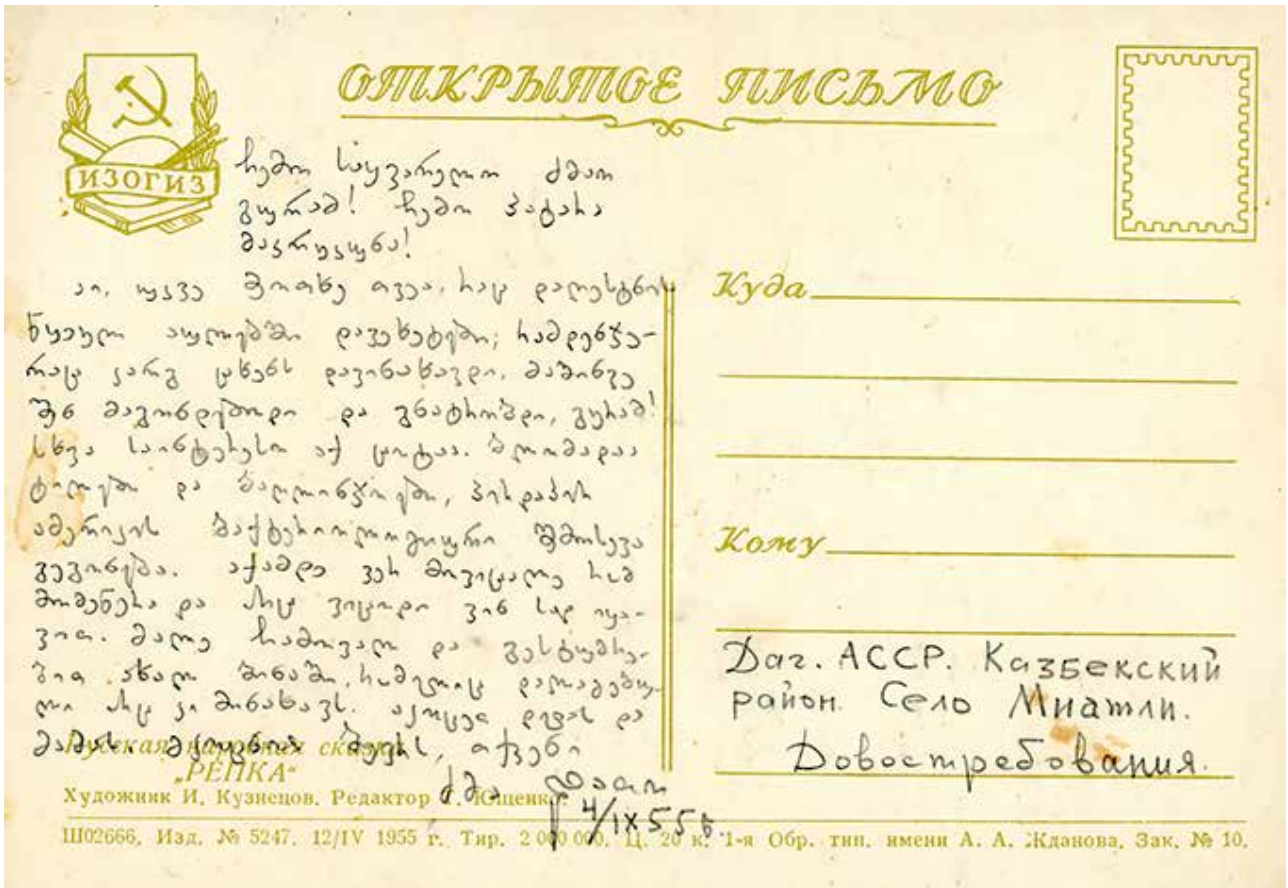 ОТКРЫТОЕ ПИСЬМО
ИЗОГИЗ
ჩემო საყვარელო ძმაო
გურამ! ჩემო პატარა
აი, უკვე მეორე თვეა, რაც დაღესტნის
წყეულ აულებში დავეხეტები; რამდენჯე-
რაც კარგ ცხენს დავინახავდი, მაშინვე
შენ მაგონდებოდი და გნატრობდი, გურამ!
სხვა საინტერესო აქ ცოტაა. ბლომადაა
ტილები და ბაღლინჯოები, პირდაპირ
ამერიკის ბაქტერიოლოგიური შემოსევა
გეგონება. აქამდე ვერ მოვიცალე რომ
მომეწერა და არც ვიცოდი ვინ სად იყა-
ვით. მალე ჩამოვალ და გესტუმრე-
ბით ახალ ბინაში, რომელიც დალაგებუ-
ლი არც კი მინახავს. აკოცე დედას და
მამას. მკოცნის ბევრს, თქვენი
ძმა დათო
4/IX 55 წ.
Куда
Кому
Даг. АССР. Казбекский
район. Село Миатли.
Довостребования.
Русская народная сказка
„РЕПКА“
Художник И. Кузнецов. Редактор Г. Ющенко
Ш02666. Изд. № 5247. 12/IV 1955 г. Тир. 2 000 000. Ц. 20 к. 1-я Обр. тип. имени А. А. Жданова. Зак. № 10.